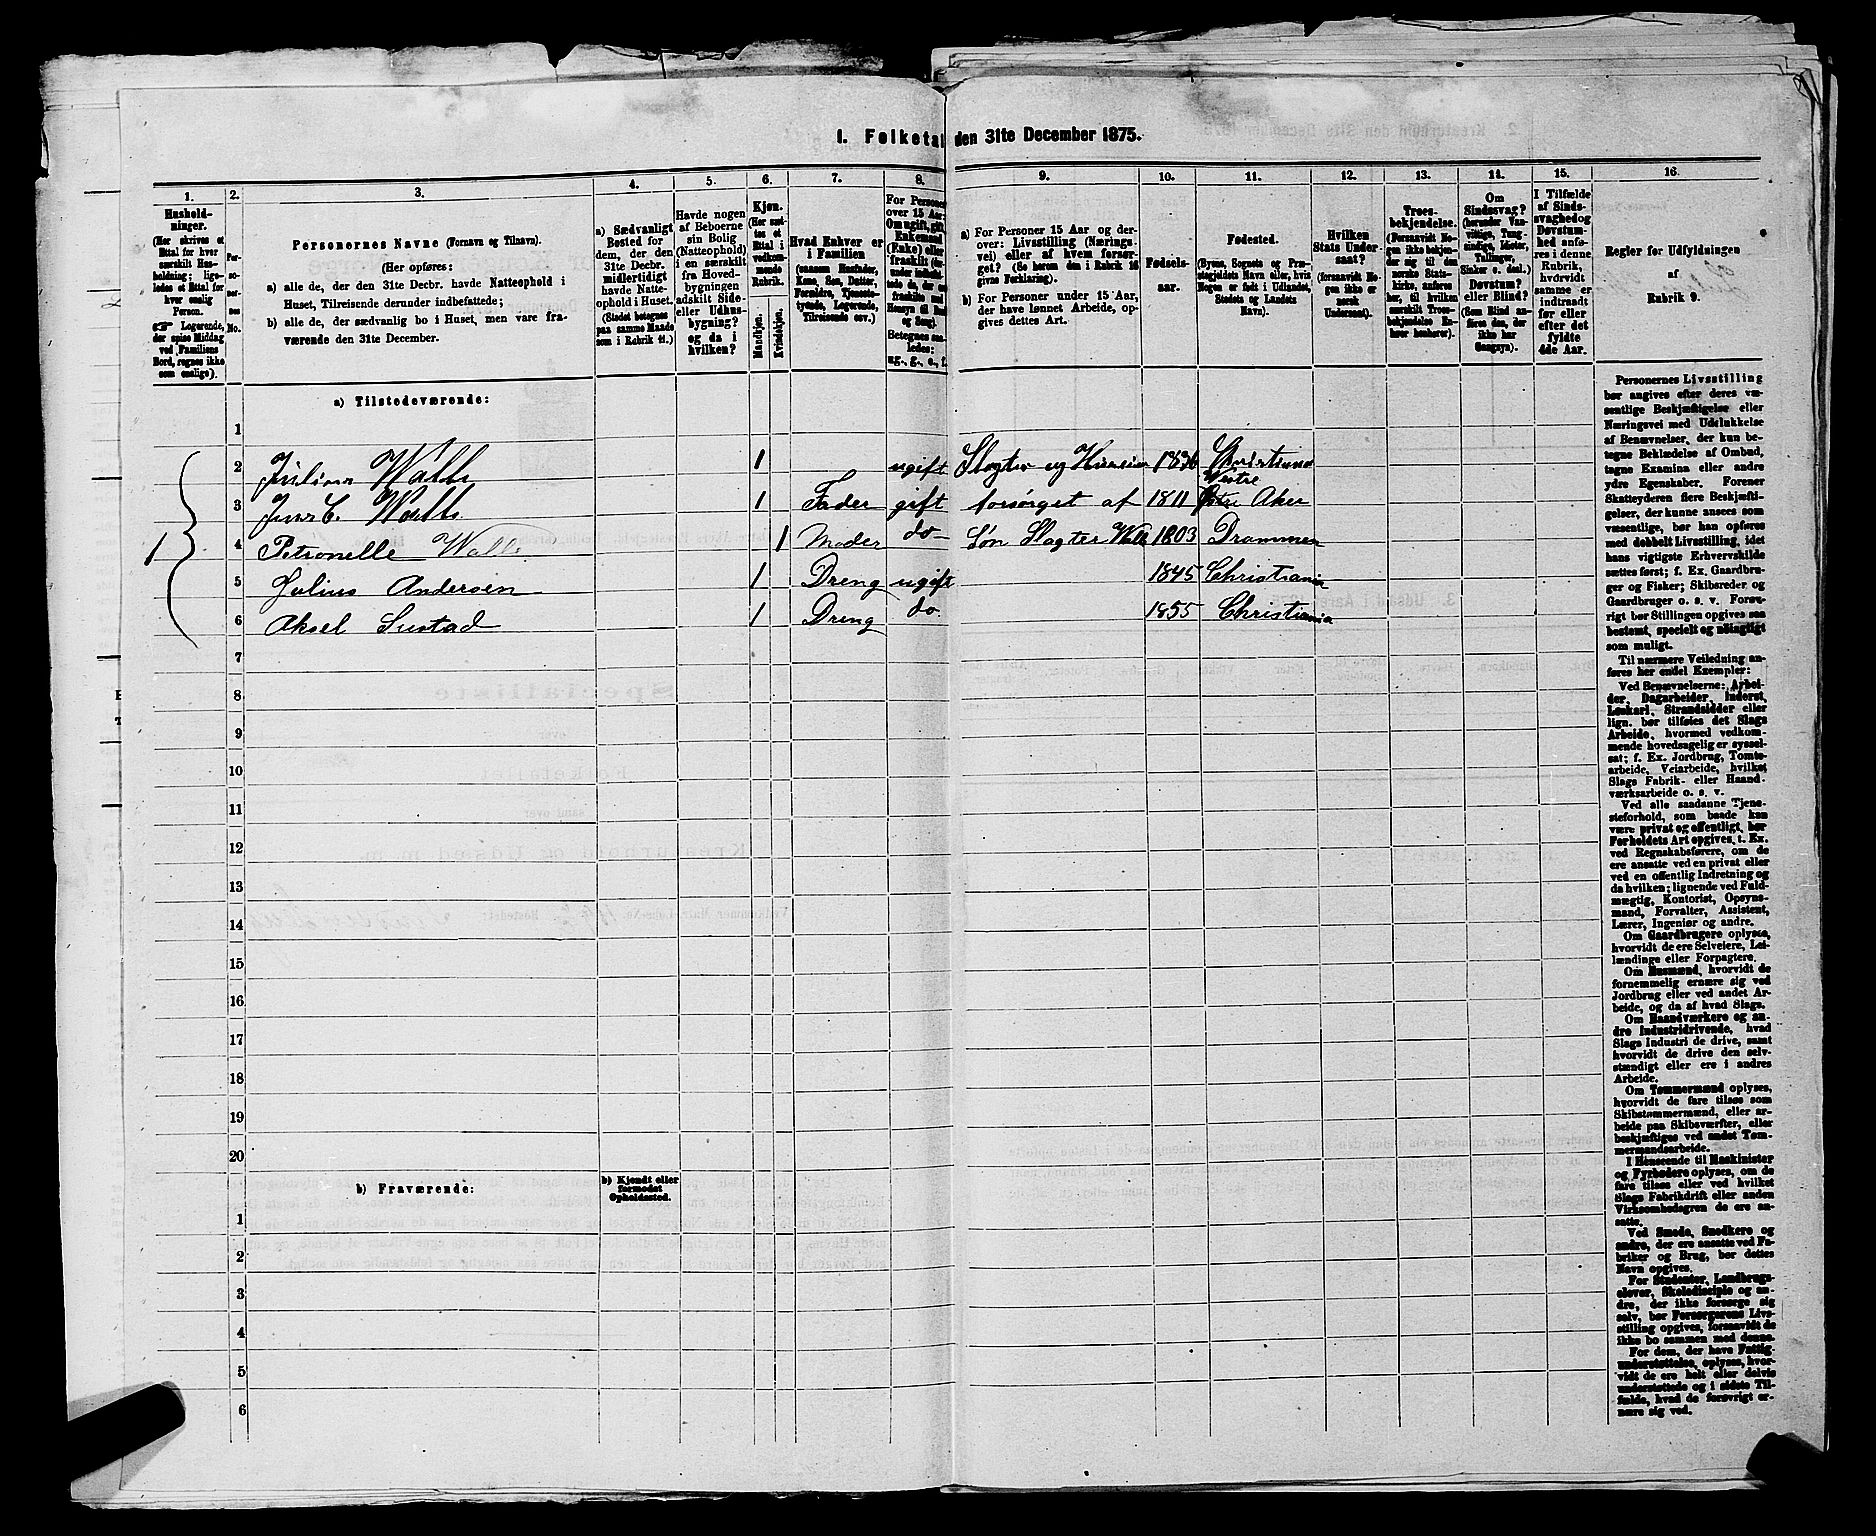 1. Folketal den 31te December 1875.
1. 2. 3. 4. 5. 6. 7. 8. 9. 10. 11. 12. 13. 14. 15. 16.
Hushold-
ninger.
(Her skrives et
Ettal for hver
særskilt Hus-
holdning; lige-
ledes et Ettal for
hver enslig
Person.
Logerende,
der spise Middag
ved Familiens
Bord, regnes ikke
som enslige).
Personernes Navne (Fornavn og Tilnavn).
(Her opføres:
a) alle de, der den 31te Decbr. havde Natteophold i
Huset, Tilreisende derunder indbefattede;
b) alle de, der sædvanlig bo i Huset, men vare fra-
værende den 31te December.
a) Sædvanligt
Bosted for
dem, der den
31te Decbr.
midlertidigt
havde Natte-
ophold i Huset.
(Stedet betegnes
paa samme Maade
som i Rubrik 11.)
Havde nogen
af Beboerne
sin Bolig
(Natteophold)
i en særskilt
fra Hoved-
bygningen
adskilt Side-
eller Udhus-
bygning?
og da i
hvilken?
Kjøn.
(Her sæt-
tes et
Ettal i
vedkom-
mende
Rubrik.
Mandkjøn.
Kvindekjøn.
Hvad Enhver er
i Familien
(saasom Husfader,
Kone, Søn, Datter,
Forældre, Tjeneste-
tyende, Logerende,
Tilreisende osv.)
For Personer
over 15 Aar:
Om ugift, gift,
Enkemand
(Enke) eller
fraskilt
Betegnes saa-
ledes:
ug., g., e., f.
a) For Personer 15 Aar og der-
over: Livsstilling (Nærings-
vei) eller af hvem forsør-
get? (Se herom den i Rubrik 16
givne Forklaring).
b) For Personer under 15 Aar,
der have lønnet Arbeide, op-
gives dettes Art.
Fødsels-
aar.
Fødested.
(Byens, Sognets og Præ-
stegjeldets Navn eller, hvis
Nogen er født i Udlandet,
Stedets og Landets
Navn).
Hvilken
Stats Under-
saat?
(forsaavidt No-
gen ikke er
norsk
Undersaat).
Troes-
bekjendelse.
(Forsaavidt No-
gen ikke bekjen-
der sig til den
norske Stats-
kirke, anføres
her, til hvilken
særskilt Tros-
bekjendelse En-
hver henhører).
Om
Sindssvag?
(herunder Van-
vittige, Tung-
sindige, Idioter,
Tullinger,
Sinker o. desl.)
Døvstum?
eller Blind?
(Som Blind an-
føres den, der
ikke har
Gangsyn).
I Tilfælde
af Sinds-
svaghed og
Døvstum-
hed anfø-
res i denne
Rubrik,
hvorvidt
samme er
indtraadt
før eller
efter det
fyldte
4de Aar.
Regler for Udfyldningen
af
Rubrik 9.
a) Tilstedeværende:
1
2 Julius Walle 1 ugift Slagter og Huseier 1836 Christiania
3 Jens C. Walle 1 Fader gift forsørget af 1811 Vestre Aker
4 Petronelle Walle 1 Moder do Søn Slagter Walle 1803 Drammen
5 Julius Andersen 1 Dreng ugift 1845 Christiania
6 Aksel Sustad 1 Dreng do 1855 Christiania
1
7
8
9
10
11
12
13
14
15
16
17
18
19
20
b) Fraværende:
b) Kjendt eller
formodet
Opholdssted.
1
2
3
4
5
6
Personernes Livsstilling
bør angives efter deres væ-
sentlige Beskjæftigelse eller
Næringsvei med Udelukkelse
af Benævnelser, der kun be-
tegne Beklædelse af Ombud,
tagne Examina eller andre
ydre Egenskaber. Forener
Skatteyderen flere Beskjæfti-
gelser, der kunne ansees som
væsentlige, bør han opføres
med dobbelt Livsstilling, idet
hans vigtigste Erhvervskilde
sættes først; f. Ex. Gaardbru-
ger og Fisker; Skibsreder og
Gaardbruger o. s. v. Forøv-
rigt bør Stillingen opgives saa
bestemt, specielt og nøiagtigt
som muligt.
Til nærmere Veiledning an-
føres her endel Exempler:
Ved Benævnelserne: Arbei-
der, Dagarbeider, Inderst,
Løskarl, Strandsidder eller
lign. bør tilføies det Slags
Arbeide, hvormed vedkom-
mende hovedsagelig er syssel-
sat; f. Ex. Jordbrug, Tomte-
arbeide, Veiarbeide, hvilket
Slags Fabrik- eller Haand-
værksarbeide o. s. v.
Ved alle saadanne Tjene-
steforhold, som baade kan
være privat og offentligt, bør
Forholdets Art opgives, t. Ex.
ved Regnskabsførere, om de
ere ansatte ved en privat eller
ved en offentlig Indretning og
da hvilken; lignende ved Fuld-
mægtig, Kontorist, Opsyns-
mand, Forvalter, Assistent,
Lærer, Ingeniør og andre.
Om Gaardbrugere oplyses,
hvorvidt de ere Selveiere, Lei-
lændinge eller Forpagtere.
Om Husmænd, hvorvidt de
fornemmelig ernære sig ved
Jordbrug eller ved andet Ar-
beide, og da af hvad Slags.
Om Haandværkere og an-
dre Industridrivende, hvad
Slags Industri de drive, samt
hvorvidt de drive den selv-
stændigt eller ere i andres
Arbeide.
Om Tømmermænd oplyses,
hvorvidt de fare tilsøs som
Skibstømmermænd, eller ar-
beide paa Skibsværfter, eller
beskjæftiges ved andet Tøm-
mermandsarbeide.
I Henseende til Maskinister
og Fyrbødere oplyses, om de
fare tilsøs eller ved hvilket
Slags Fabrikdrift eller anden
Virksomhedsgren de ere an-
satte.
Ved Smede, Snedkere og
andre, der ere ansatte ved Fa-
briker og Brug, bør dettes
Navn opgives.
For Studenter, Landbrugs-
elever, Skoledisciple og an-
dre, der ikke forsørge sig
selv, bør Forsørgerens Livs-
stilling opgives, forsaavidt de
ikke bo sammen med denne.
For dem, der have Fattig-
understøttelse, oplyses, hvor-
vidt de ere helt eller delvis
understøttede og i sidste Til-
fælde, hvad de forøvrigt er-
nære sig ved.